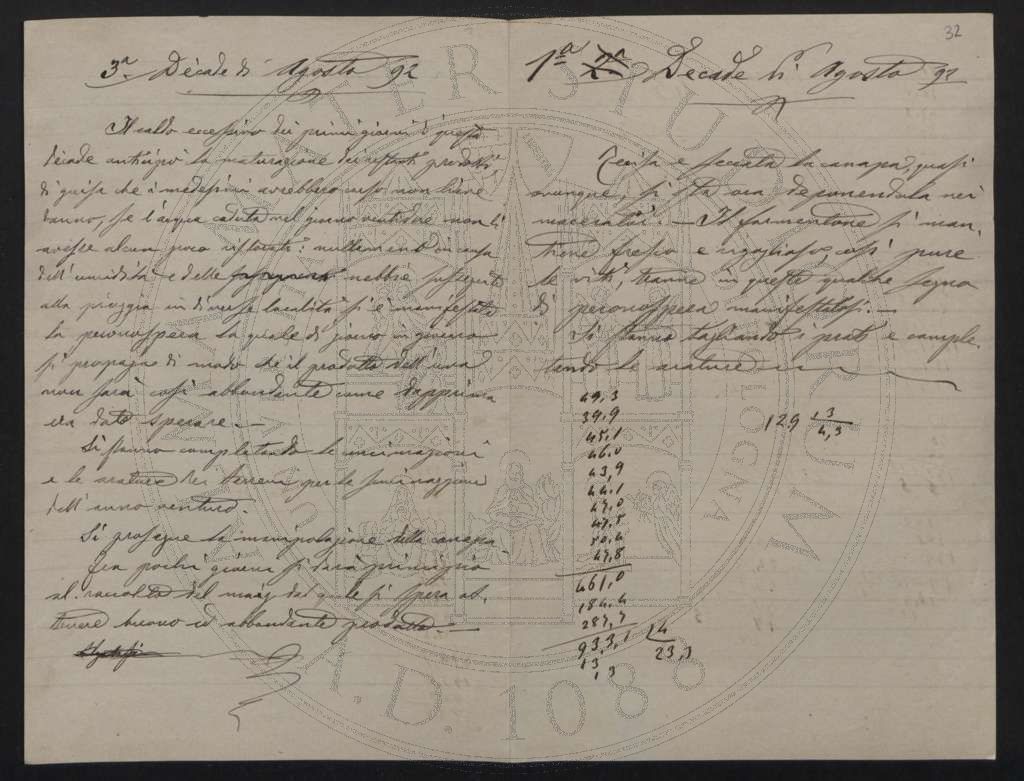 32
3ª Decade di Agosto 92
Il caldo eccessivo dei primi giorni di questa
decade anticipò la maturazione dei restanti prodotti,
di guisa che i medesimi avrebbero reso non lieve
danno, se l'acqua caduta nel giorno ventidue non li
avesse alcun poco ristorati: nullameno in causa
dell'umidità e delle nebbie susseguite
alla pioggia in diverse località si è manifestata
la peronospera la quale di giorno in giorno
si propaga di modo che il prodotto dell'uva
non sarà così abbondante come dapprima
era dato sperare. —
Si stanno completando le concimazioni
e le arature dei terreni per le seminagioni
dell'anno venturo.
Si prosegue la manipolazione della canapa.
Fra pochi giorni si darà principio
al raccolto del maiz dal quale si spera ot-
tenere buono ed abbondante prodotto. —
1ª Decade di Agosto 92
Recisa e seccata la canapa, quasi
ovunque, si sta ora deponendola nei
maceratoi. — Il formentone si man-
tiene fresco e rigoglioso, così pure
le viti, tranne in queste qualche segno
di peronospera manifestatosi. —
Si stanno tagliando i prati e comple-
tando le arature
49,3
39,9
45,1
46,0
43,9
44,1
47,0
47,5
50,4
47,8
461,0
184,4
287,7
933,1 14
13 23,3
13
129 13
4,3
ALMA MATER STUDIORUM
BOLOGNA
A.D. 1088